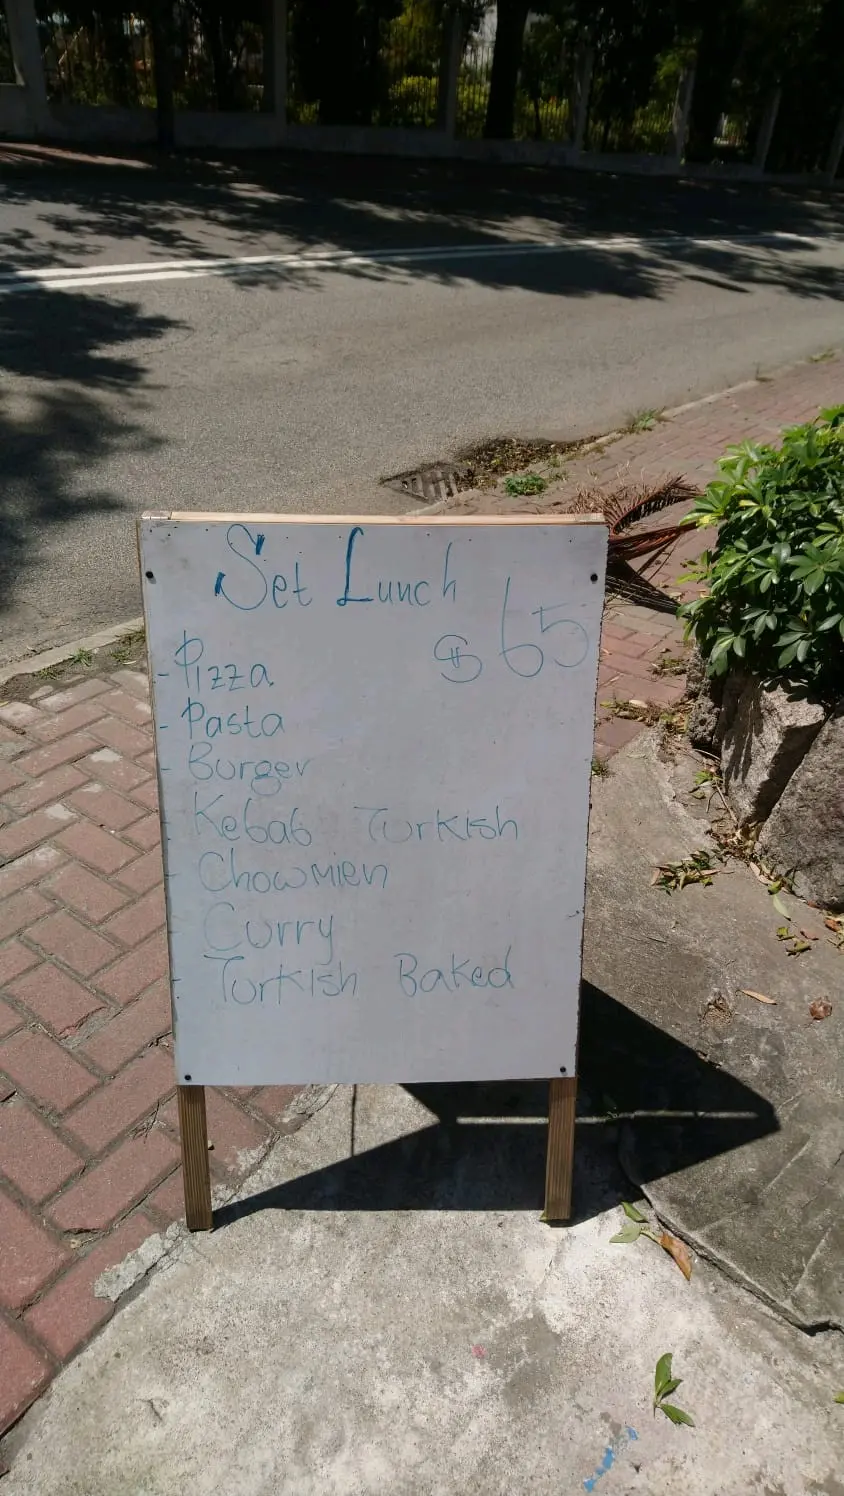 Set Lunch
$ 65
- Pizza
- Pasta
- Burger
- Kebab Turkish
- Chowmien
- Curry
- Turkish Baked